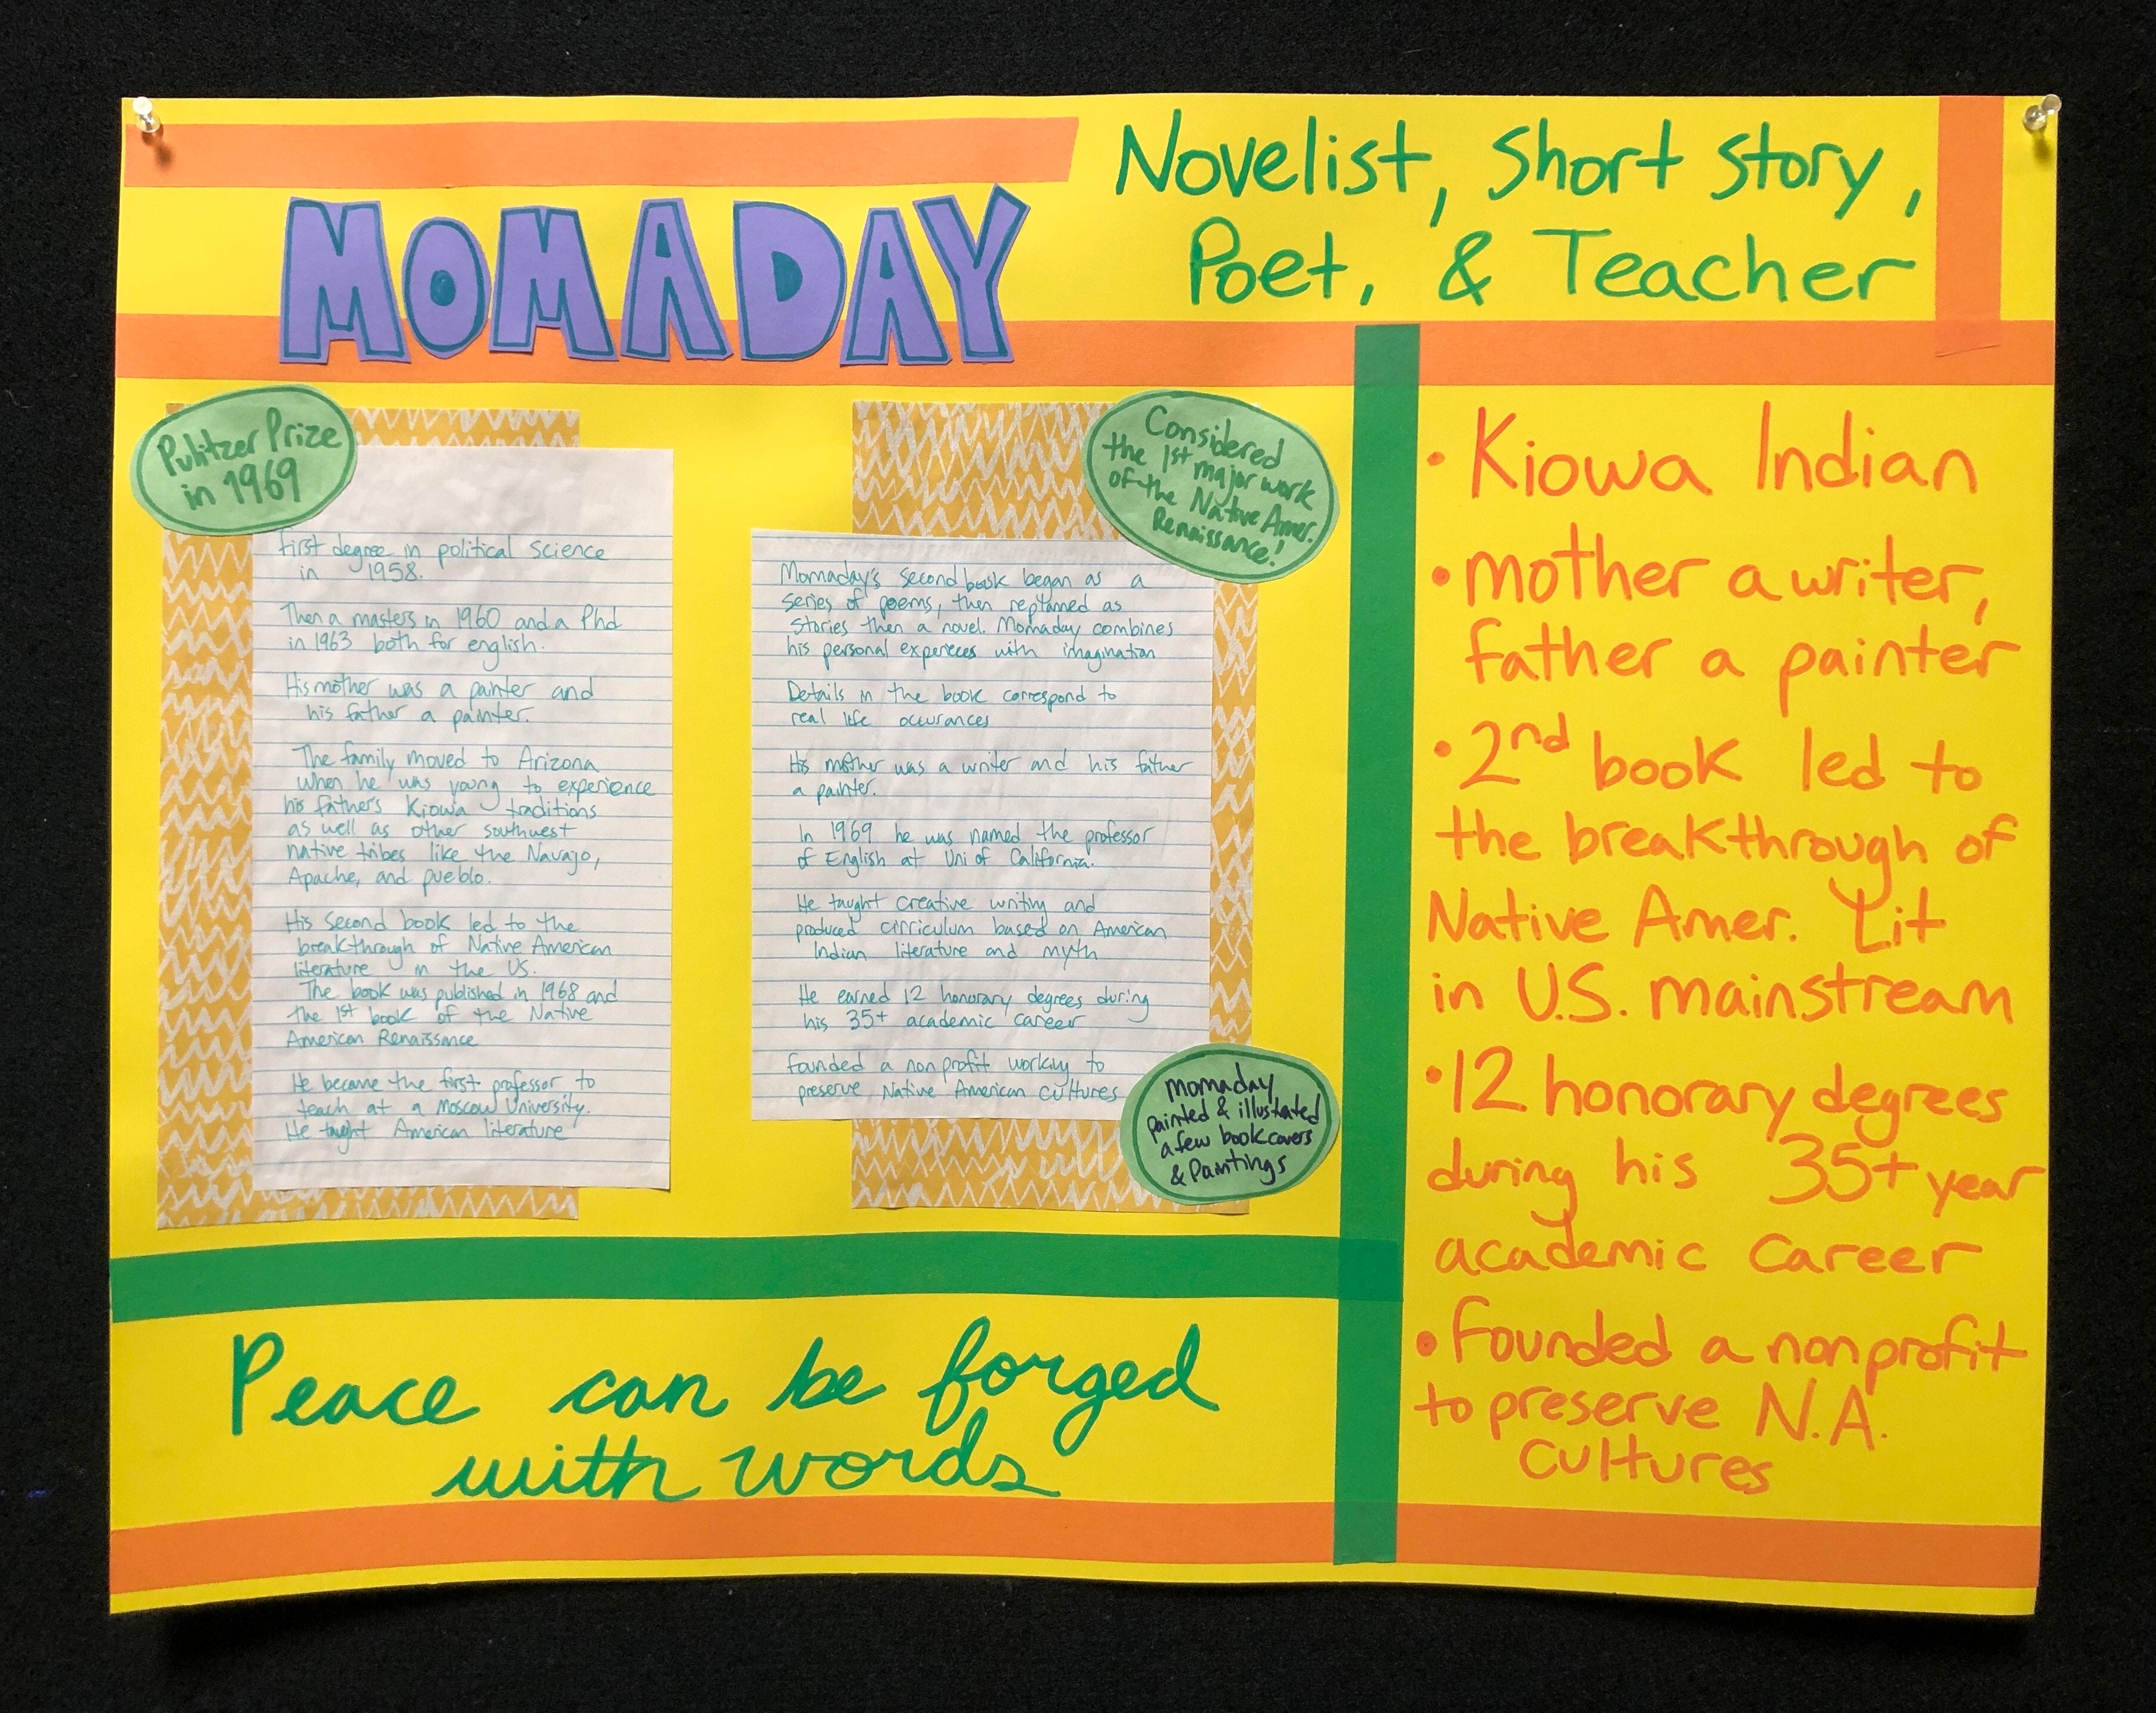 MOMADAY
Novelist, Short Story,
Poet, & Teacher
Pulitzer Prize
in 1969
First degree in political science
in 1958.
Then a masters in 1960 and a Phd
in 1963 both for english.
His mother was a painter and
his father a painter.
The family moved to Arizona
when he was young to experience
his fathers Kiowa traditions
as well as other southwest
native tribes like the Navajo,
Apache, and pueblo.
His second book led to the
breakthrough of Native American
literature in the US.
The book was published in 1968 and
the 1st book of the Native
American Renaissance
He became the first professor to
teach at a Moscow University.
He taught American literature
Considered
the 1st major work
of the Native Amer.
Renaissance!
Momaday's second book began as a
series of poems, then as
stories then a novel. Momaday combines
his personal expereces with imagination
Details in the book correspond to
real life occurances
His mother was a writer and his father
a painter.
In 1969 he was named the professor
of English at Uni of California.
He taught creative writing and
produced cirriculum based on American
Indian literature and myth
He earned 12 honorary degrees during
his 35+ academic career
Founded a nonprofit working to
preserve Native American cultures
momaday
painted & illustrated
a few book covers
& Paintings
Peace can be forged
with words
• Kiowa Indian
• mother a writer,
father a painter
• 2nd book led to
the breakthrough of
Native Amer. Lit
in U.S. mainstream
• 12 honorary degrees
during his 35+ year
academic career
• Founded a nonprofit
to preserve N.A.
cultures